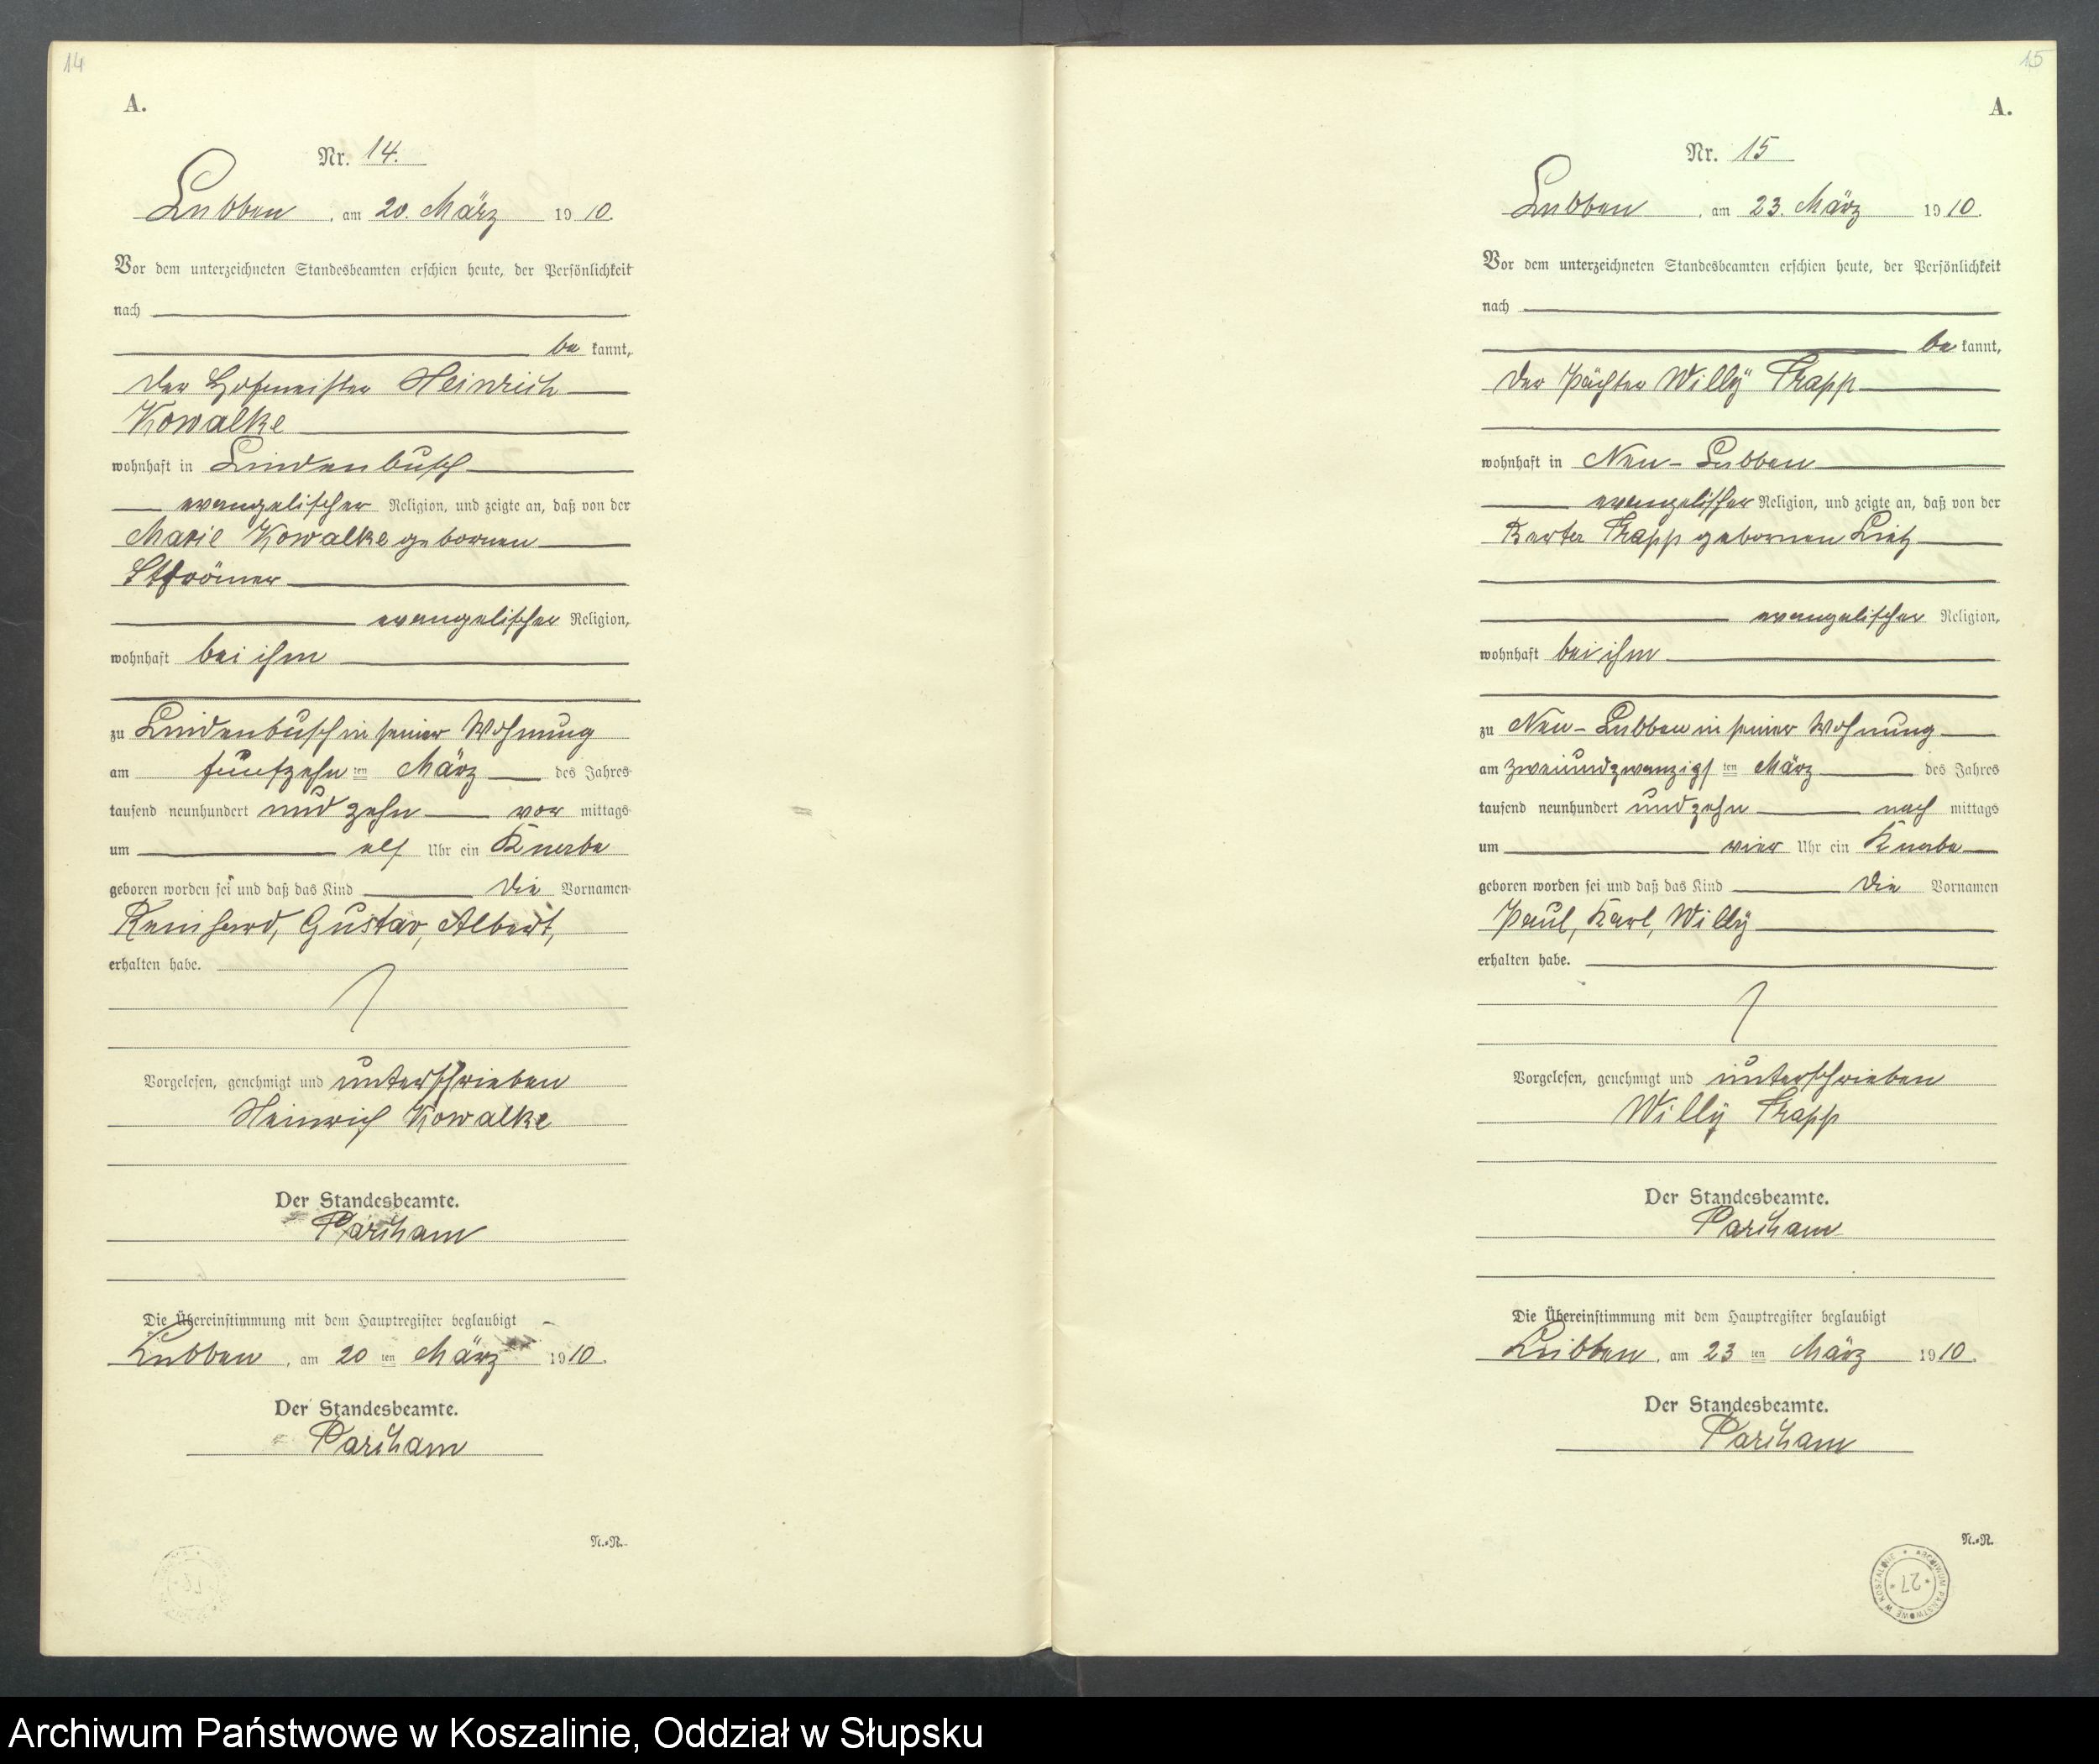 14
A.
Nr. 14.
Lubben, am 20. März 1910.
Vor dem unterzeichneten Standesbeamten erschien heute, der Persönlichkeit
nach
be kannt,
der Hofmeister Heinrich
Kowalke
wohnhaft in Lindenbusch
evangelischer Religion, und zeigte an, daß von der
Marie Kowalke gebornen
evangelischer Religion,
wohnhaft bei ihm
zu Lindenbusch in seiner Wohnung
am fünfzehn ten März des Jahres
tausend neunhundert und zehn vor mittags
um elf Uhr ein Knabe
geboren worden sei und daß das Kind die Vornamen
Reinhard, Gustav, Albert,
erhalten habe.
Vorgelesen, genehmigt und unterschrieben
Heinrich Kowalke
Der Standesbeamte.
Die Übereinstimmung mit dem Hauptregister beglaubigt
Lubben, am 20 ten März 1910.
Der Standesbeamte.
N.-R.
15
A.
Nr. 15
Lubben, am 23. März 1910.
Vor dem unterzeichneten Standesbeamten erschien heute, der Persönlichkeit
nach
be kannt,
der Pächter Willy Trapp
wohnhaft in Neu-Lubben
evangelischer Religion, und zeigte an, daß von der
Trapp gebornen Lietz
evangelischer Religion,
wohnhaft bei ihm
zu Neu-Lubben in seiner Wohnung
am zweiundzwanzigs ten März des Jahres
tausend neunhundert und zehn nach mittags
um vier Uhr ein Knabe
geboren worden sei und daß das Kind die Vornamen
Paul, Karl, Willy
erhalten habe.
Vorgelesen, genehmigt und unterschrieben
Willy Trapp
Der Standesbeamte.
Die Übereinstimmung mit dem Hauptregister beglaubigt
Lubben, am 23 ten März 1910.
Der Standesbeamte.
N.-R.
ARCHIWUM PAŃSTWOWE W KOSZALINIE
* 27 *
Archiwum Państwowe w Koszalinie, Oddział w Słupsku